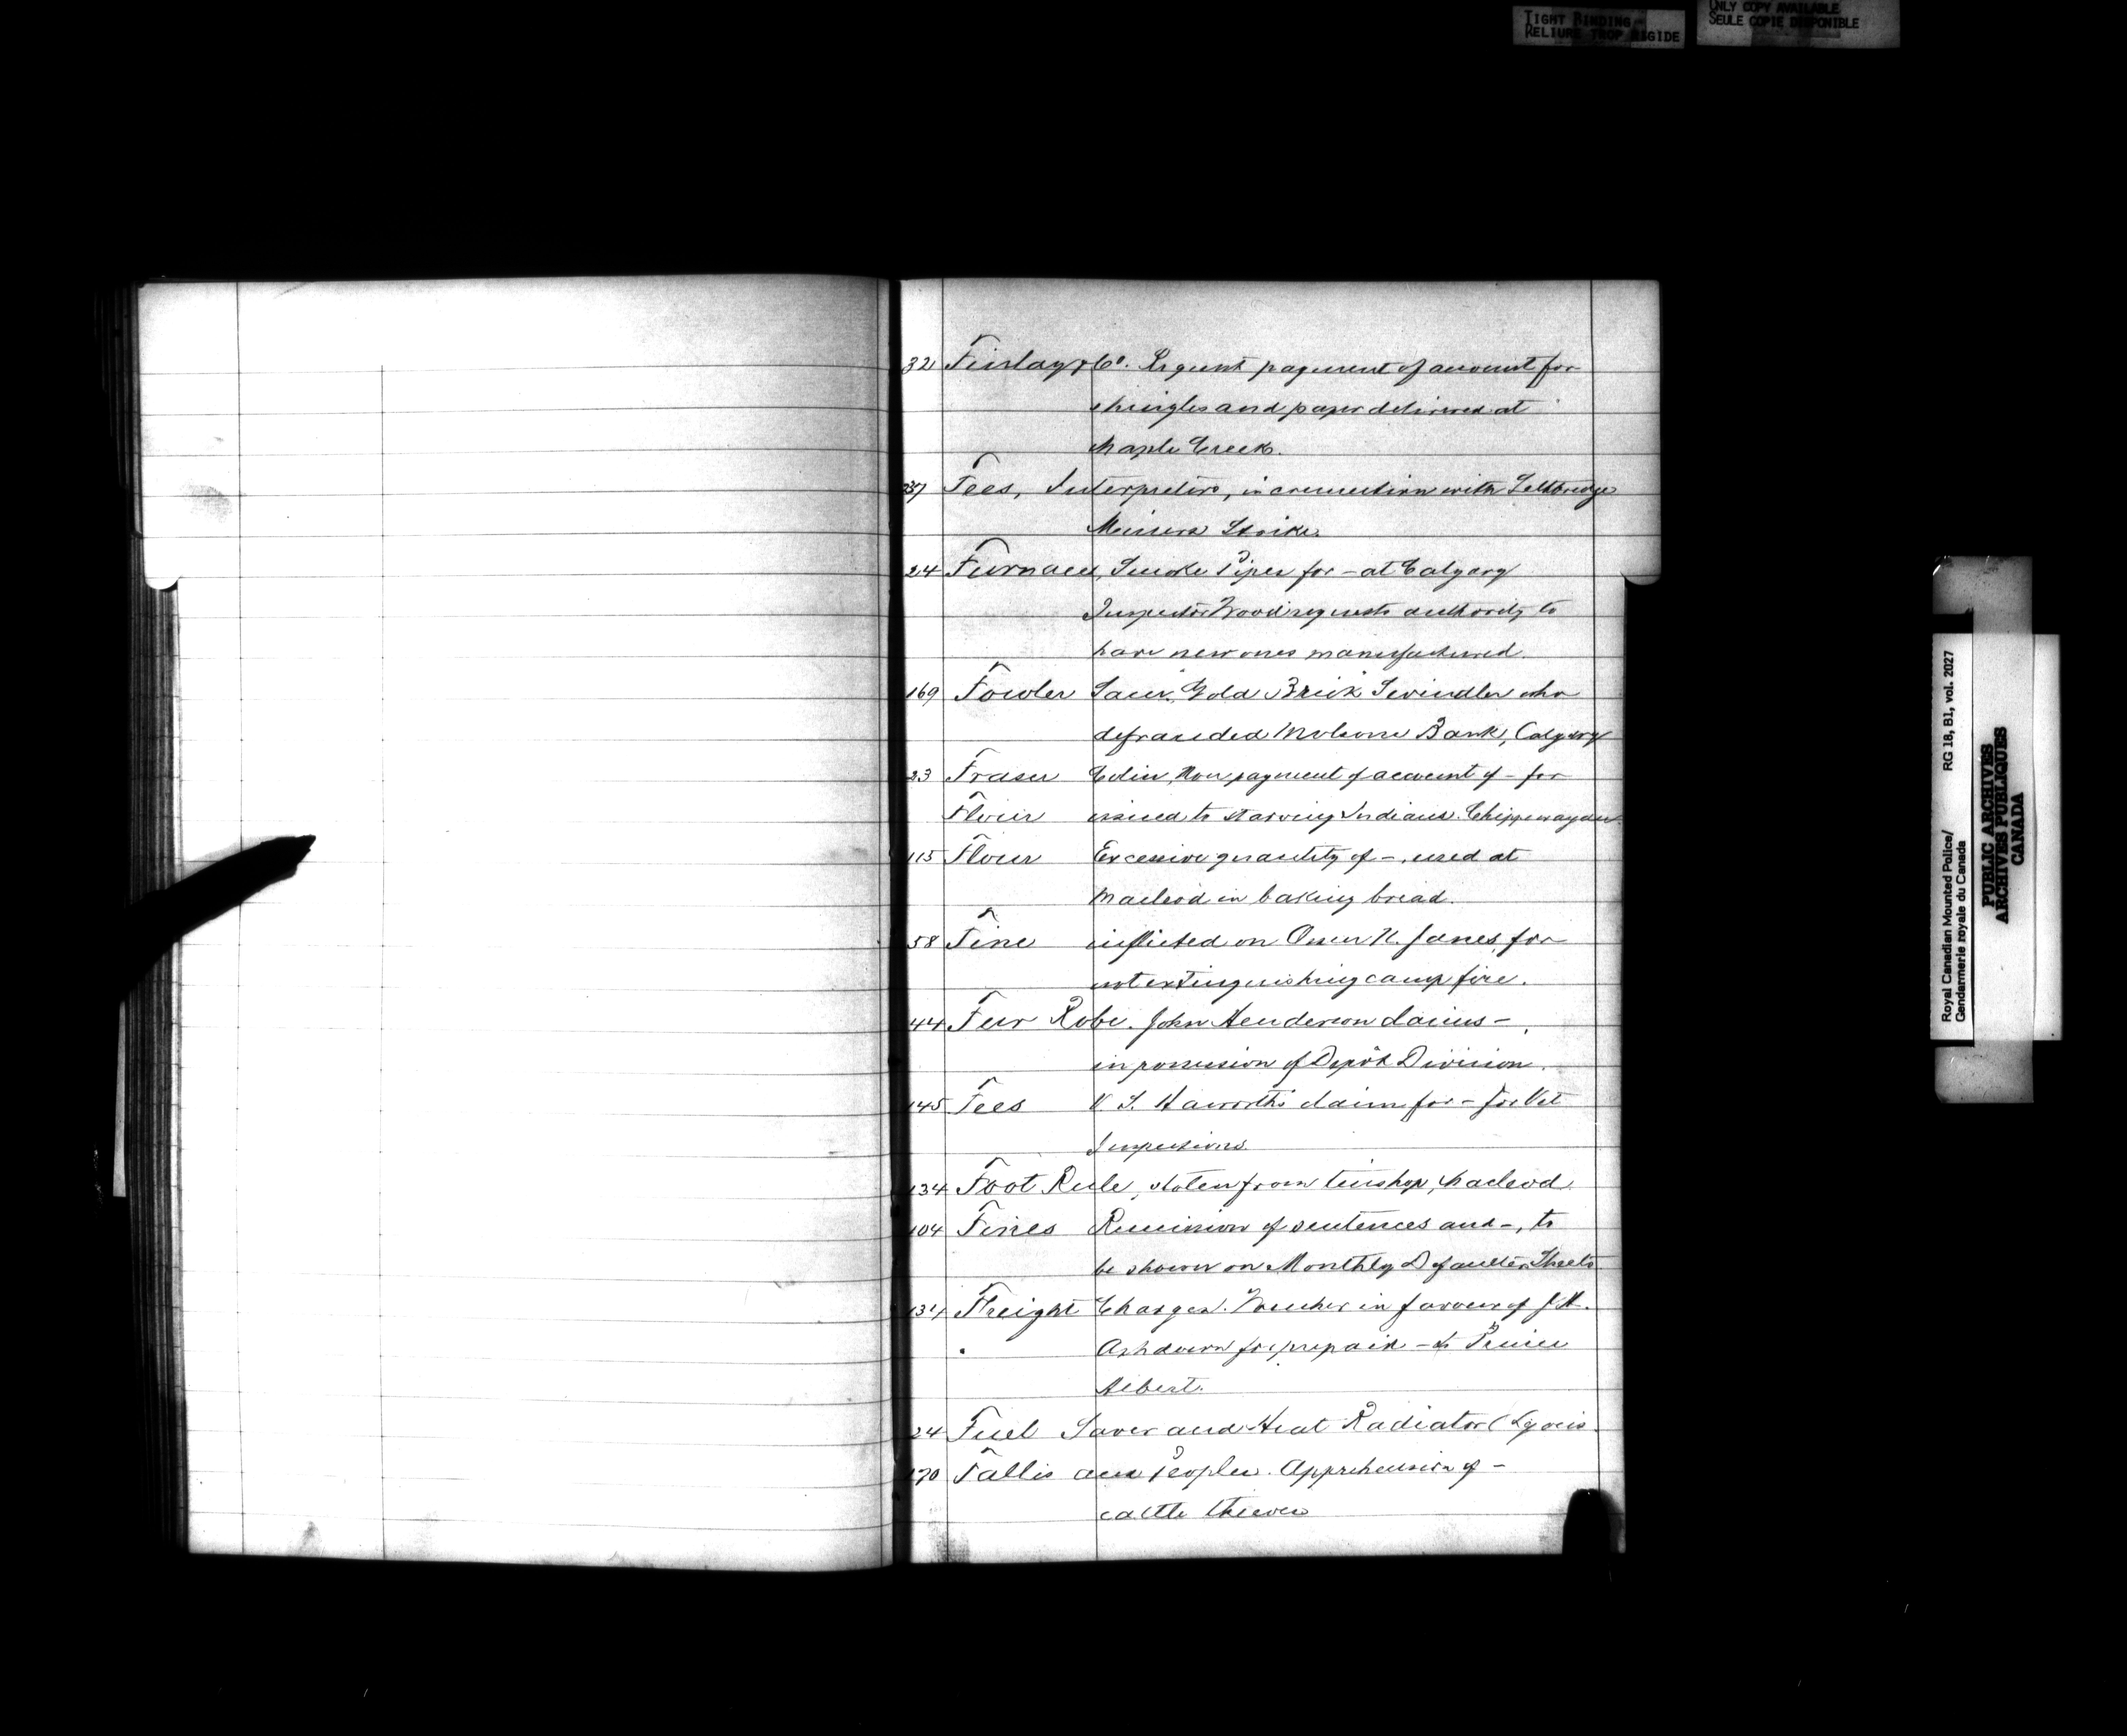 TIGHT BINDING -
RELIURE TROP RIGIDE
ONLY COPY AVAILABLE
SEULE COPIE DISPONIBLE
32 Finlay & Co. Request payment of account for
shingles and paper delivered at
Maple Creek.
Fees, Interpreters, in connection with Lethbridge
Miners Strike.
24 Furnaces, Smoke Pipes for - at Calgary
Inspector Wood requests authority to
have new ones manufactured.
169 Fowler Gold Brick Swindler who
defrauded Molsons Bank, Calgary
23 Fraser Colin, Non payment of account of - for
Flour issued to starving Indians. Chippewayan
115 Flour Excessive quantity of -, used at
Macleod in baking bread.
58 Fine inflicted on Owen N. Jones, for
not extinguishing camp fire.
44 Fur Robe. John Henderson claims -
in possession of Depôt Division.
145 Fees Haworth's claim for - for Vet
Inspections.
134 Foot Rule, stolen from tinshop, Macleod.
104 Fines Remission of sentences and -, to
be shown on Monthly Defaulter Sheets
134 Freight Charges. Voucher in favour of J.H.
Ashdown for prepaid - to Prince
Albert.
24 Fuel Saver and Heat Radiator
170 Fallis and Peoples. Apprehension of -
cattle thieves
Royal Canadian Mounted Police/
Gendarmerie royale du Canada
RG 18, B1, vol. 2027
PUBLIC ARCHIVES
ARCHIVES PUBLIQUES
CANADA